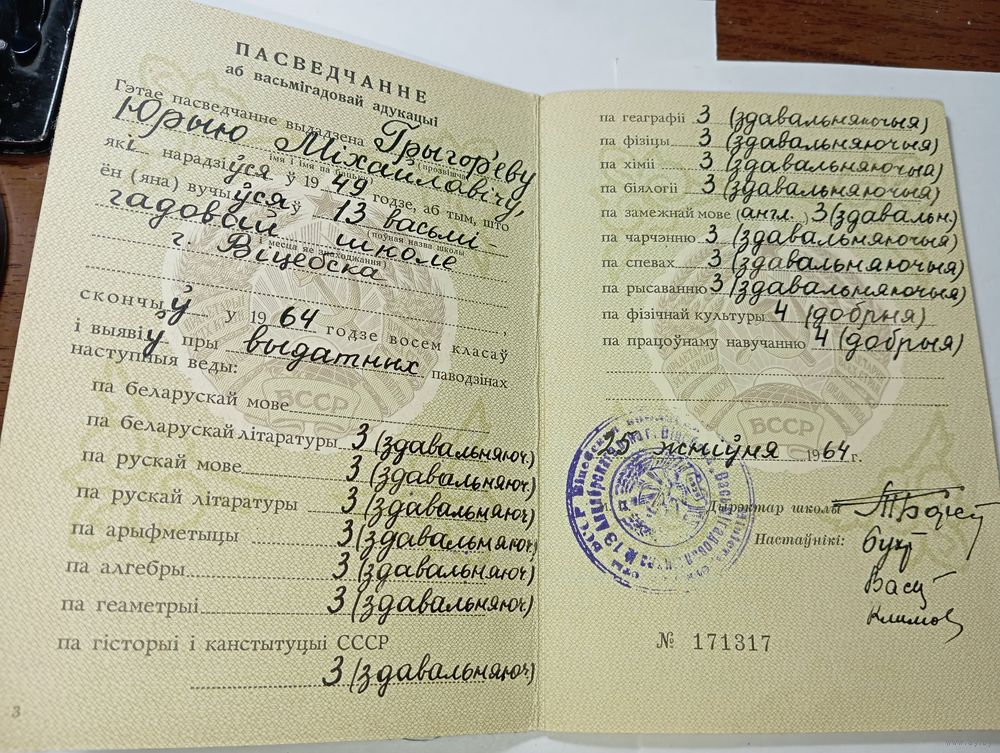 ПАСВЕДЧАННЕ
аб васьмігадовай адукацыі
Гэтае пасведчанне выдадзена Грыгор'еву
(прозвішча,
Юрыю Міхайлавічу,
імя і імя па бацьку)
які нарадзіўся ў 1949 годзе, аб тым, што
ён (яна) вучыўся ў 13 васьмі-
(поўная назва школы
гадовай школе
і месца яе знаходжання)
г. Віцебска
скончыў у 1964 годзе восем класаў
і выявіў пры выдатных паводзінах
наступныя веды:
па беларускай мове
па беларускай літаратуры 3 (здавальняюч.)
па рускай мове 3 (здавальняюч.)
па рускай літаратуры 3 (здавальняюч)
па арыфметыцы 3 (здавальняюч)
па алгебры 3 (здавальняюч)
па геаметрыі 3 (здавальняюч)
па гісторыі і канстытуцыі СССР
3 (здавальняюч.)
3
БССР
па геаграфіі 3 (здавальняючыя)
па фізіцы 3 (здавальняючыя)
па хіміі 3 (здавальняючыя)
па біялогіі 3 (здавальняючыя)
па замежнай мове (англ.) 3 (здавальн.)
па чарчэнню 3 (здавальняючыя)
па спевах 3 (здавальняючыя)
па рысаванню 3 (здавальняючыя)
па фізічнай культуры 4 (добрыя)
па працоўнаму навучанню 4 (добрыя)
БССР
25 жніўня 1964 г.
Дырэктар школы
Настаўнікі:
Климов
№ 171317